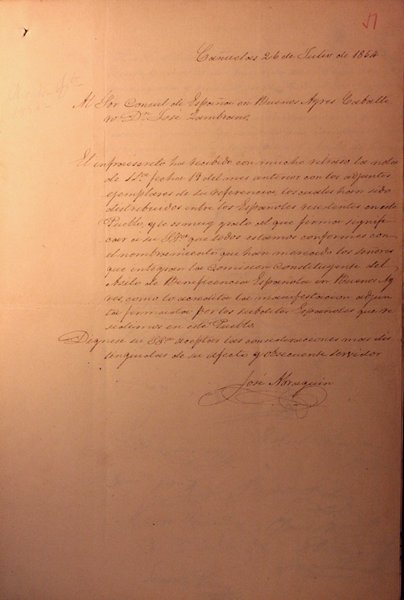 51
Canuelas 26 de Julio de 1854
Al Sor Consul de España en Buenos Ayres Caballe
ro Dn José Zambrano.
El infrascrito ha recibido con mucho retraso la nota
de fecha 19 del mes anterior con los adjuntos
ejemplares de su referencia, los cuales han sido
distribuidos entre los Españoles residentes en este
Pueblo, y le es muy grato al que firma signifi
car a su que todos estamos conformes con
el nombramiento que han merecido los señores
que integran la Comision Constituyente del
Asilo de Beneficencia Española en Buenos Ay
res, como lo acredita la manifestacion adjun
ta firmada por los Subditos Españoles que re
sidimos en este Pueblo.
Dignese su aceptar las consideraciones mas dis
tinguidas de su afecto y obsecuente servidor
José